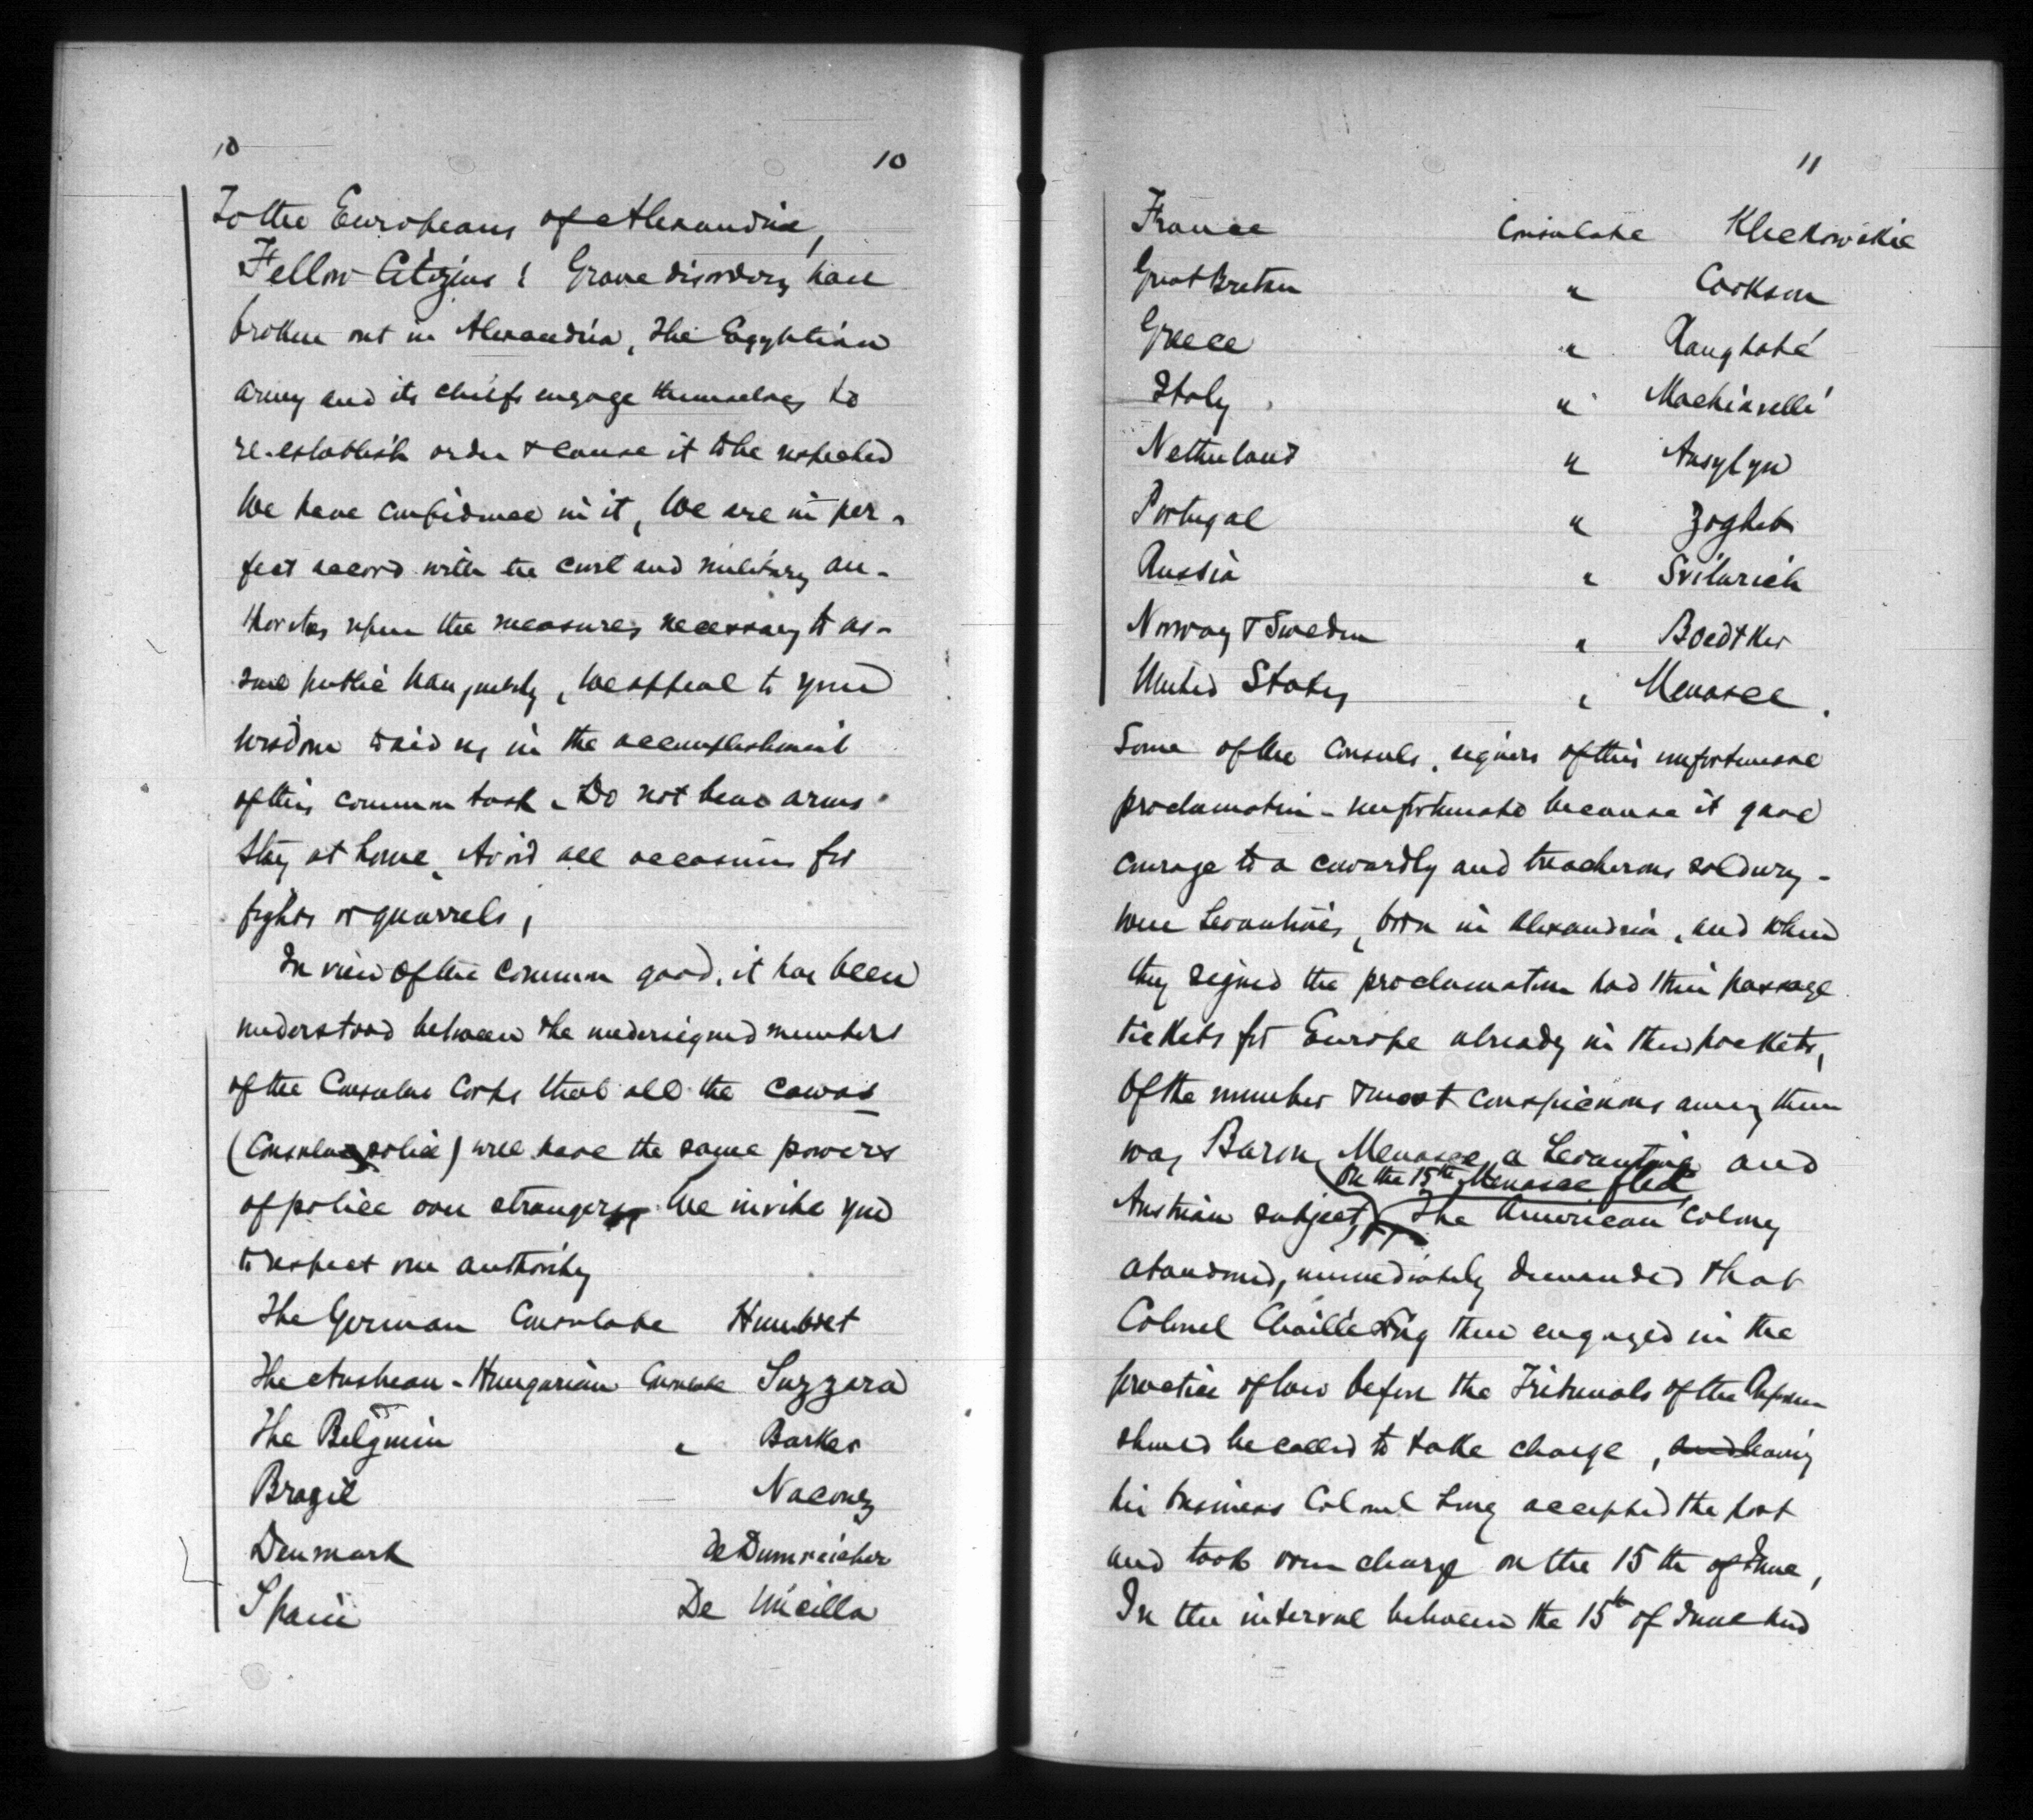 10
10
To the Europeans of Alexandria,
Fellow Citizens! Grave disorders have
broken out in Alexandria, The Egyptian
army and its chiefs engage themselves to
re-establish order & cause it to be respected
We have confidence in it, We are in per-
fect accord with the civil and military au-
thorities upon the measures necessary to as-
sure public tranquility, We appeal to your
wisdom to aid us in the accomplishment
of this common task. Do not bear arms
Stay at home. Avoid all occasions for
fights or quarrels,
In view of the common good, it has been
understood between the undersigned members
of the Consular Corps that all the cawas
(Consular police) will have the same powers
of police over strangers We invite you
to respect our authority
The German Consulate Humbret
The Austrian-Hungarian Consulate Suzzara
The Belgium " Barker
Brazil Nacouz
Denmark De Dumreicher
Spain De
11
France Consulate Kleckowskie
Great Britain " Cookson
Greece " Ranghabé
Italy " Machiavelli
Netherland " Anslyn
Portugal " Zogheb
Russia " Svilarich
Norway & Sweden " Boedtker
United States " Menasce.
Some of the Consuls, signers of this unfortunate
proclamation - unfortunate because it gave
courage to a cowardly and treacherous soldiery -
were Levantines, born in Alexandria, and when
they signed the proclamation had their passage
tickets for Europe already in their pockets,
Of the number & most conspicuous among them
was Baron Menasce a Levantine and
On the 15th Menasce fled
Austrian subject, The American Colony
abandoned, immediately demanded that
Colonel Chaillé Long then engaged in the
practice of law before the Tribunals of the Reform
should be called to take charge, and leaving
his business Colonel Long accepted the post
and took over charge on the 15th of June,
In the interval between the 15th of June and